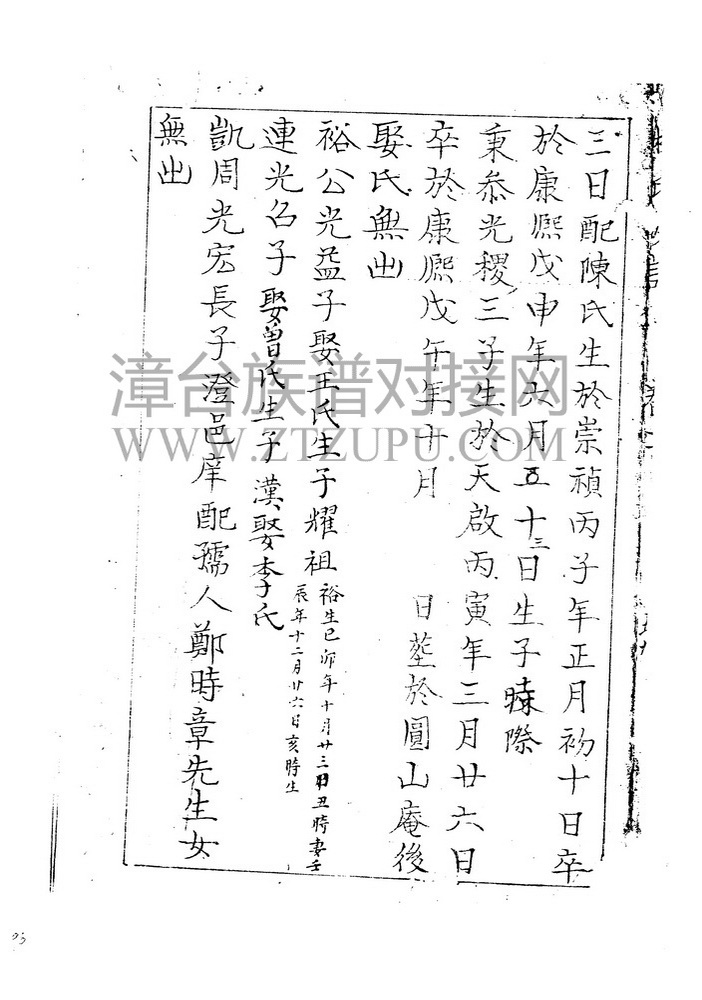 三日配陳氏生於崇禎丙子年正月初十日卒
於康熙戊申年九月五十三日生子時際
秉叅光稷三子生於天啟丙寅年三月廿六日
卒於康熙戊午年十月 日塟於圓山庵後
娶氏無出
裕公光益子娶王氏生子耀祖 裕生己卯年十月廿三日丑時妻壬
辰年十二月廿六日亥時生
連光名子娶曾氏生子漢娶李氏
凱周光宏長子澄邑庠配孺人鄭時章先生女
無出
漳台族谱对接网
WWW.ZTZUPU.COM